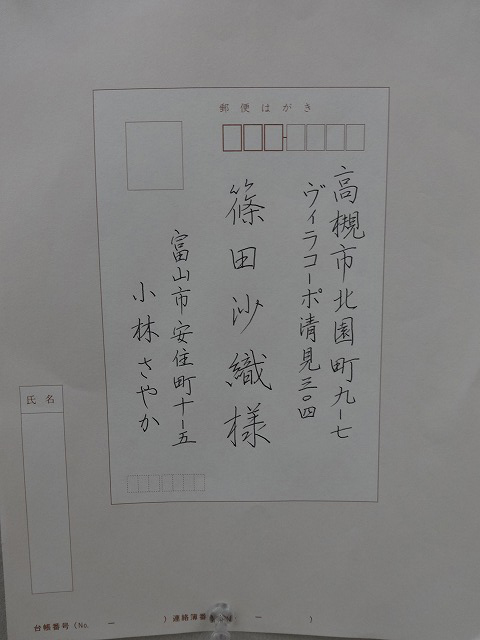 郵便はがき
高槻市北園町九-七
ヴィラコーポ清見三〇四
篠田沙織様
富山市安住町十-五
小林さやか
氏名
台帳番号(No. ー ) 連絡簿番 ー )